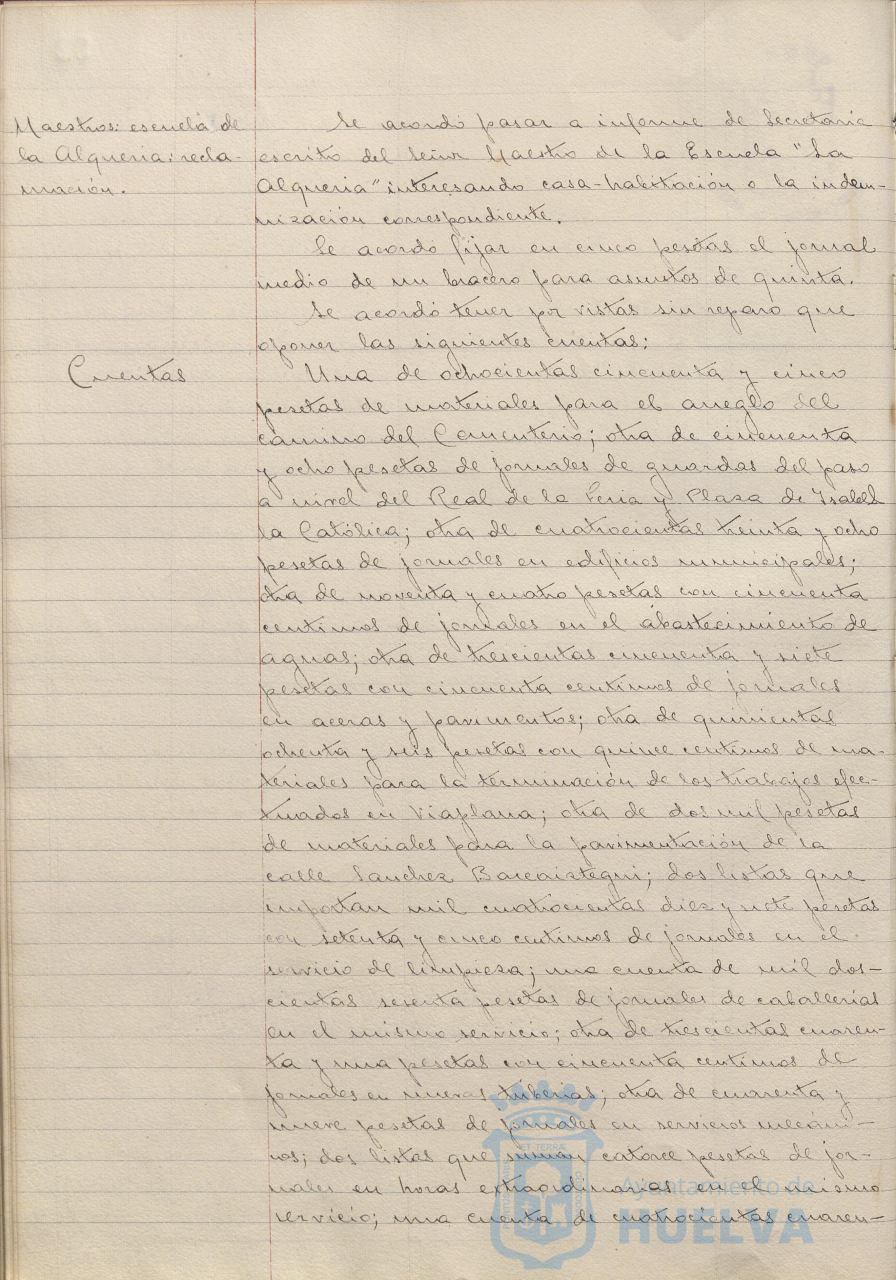 Maestros: escuela de
la Alqueria: recla-
mación.
Se acordó pasar a informe de Secretaria
escrito del Señor Maestro de la Escuela "La
Alqueria" interesando casa-habitación o la indem-
nización correspondiente.
Se acordo fijar en cinco pesetas el jornal
medio de un bracero para asuntos de quinta.
Se acordó tener por vistas sin reparo que
oponer las siguientes cuentas:
Cuentas
Una de ochocientas cincuenta y cinco
pesetas de materiales para el arreglo del
camino del Cementerio; otra de cincuenta
y ocho pesetas de jornales de guardas del paso
a nivel del Real de la Feria y Plaza de Isabel
la Católica; otra de cuatrocientas treinta y ocho
pesetas de jornales en edificios municipales;
otra de noventa y cuatro pesetas con cincuenta
centimos de jornales en el abastecimiento de
aguas; otra de trescientas cincuenta y siete
pesetas con cincuenta centimos de jornales
en aceras y pavimentos; otra de quinientas
ochenta y seis pesetas con quince centimos de ma-
teriales para la terminación de los trabajos efec-
tuados en Viaplana; otra de dos mil pesetas
de materiales para la pavimentación de la
calle Sanchez Barcaiztegui; dos listas que
importan mil cuatrocientas diez y siete pesetas
con setenta y cinco centimos de jornales en el
servicio de limpieza; una cuenta de mil dos-
cientas sesenta pesetas de jornales de caballerias
en el mismo servicio; otra de trescientas cuaren-
ta y una pesetas con cincuenta centimos de
jornales en nuevas tuberias; otra de cuarenta y
nueve pesetas de jornales en servicios mecáni-
cos; dos listas que suman catorce pesetas de jor-
nales en horas extraordinarias en el mismo
servicio; una cuenta de cuatrocientas cuaren-
Ayuntamiento de
HUELVA